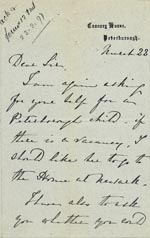 Canonry House,
Peterborough.
March 28
Dear Sir,
I am again asking
for your help for a
Peterborough child, if
there is a vacancy. I
should like her to go to
the Home at Newark.
I have also to ask
you whether you could